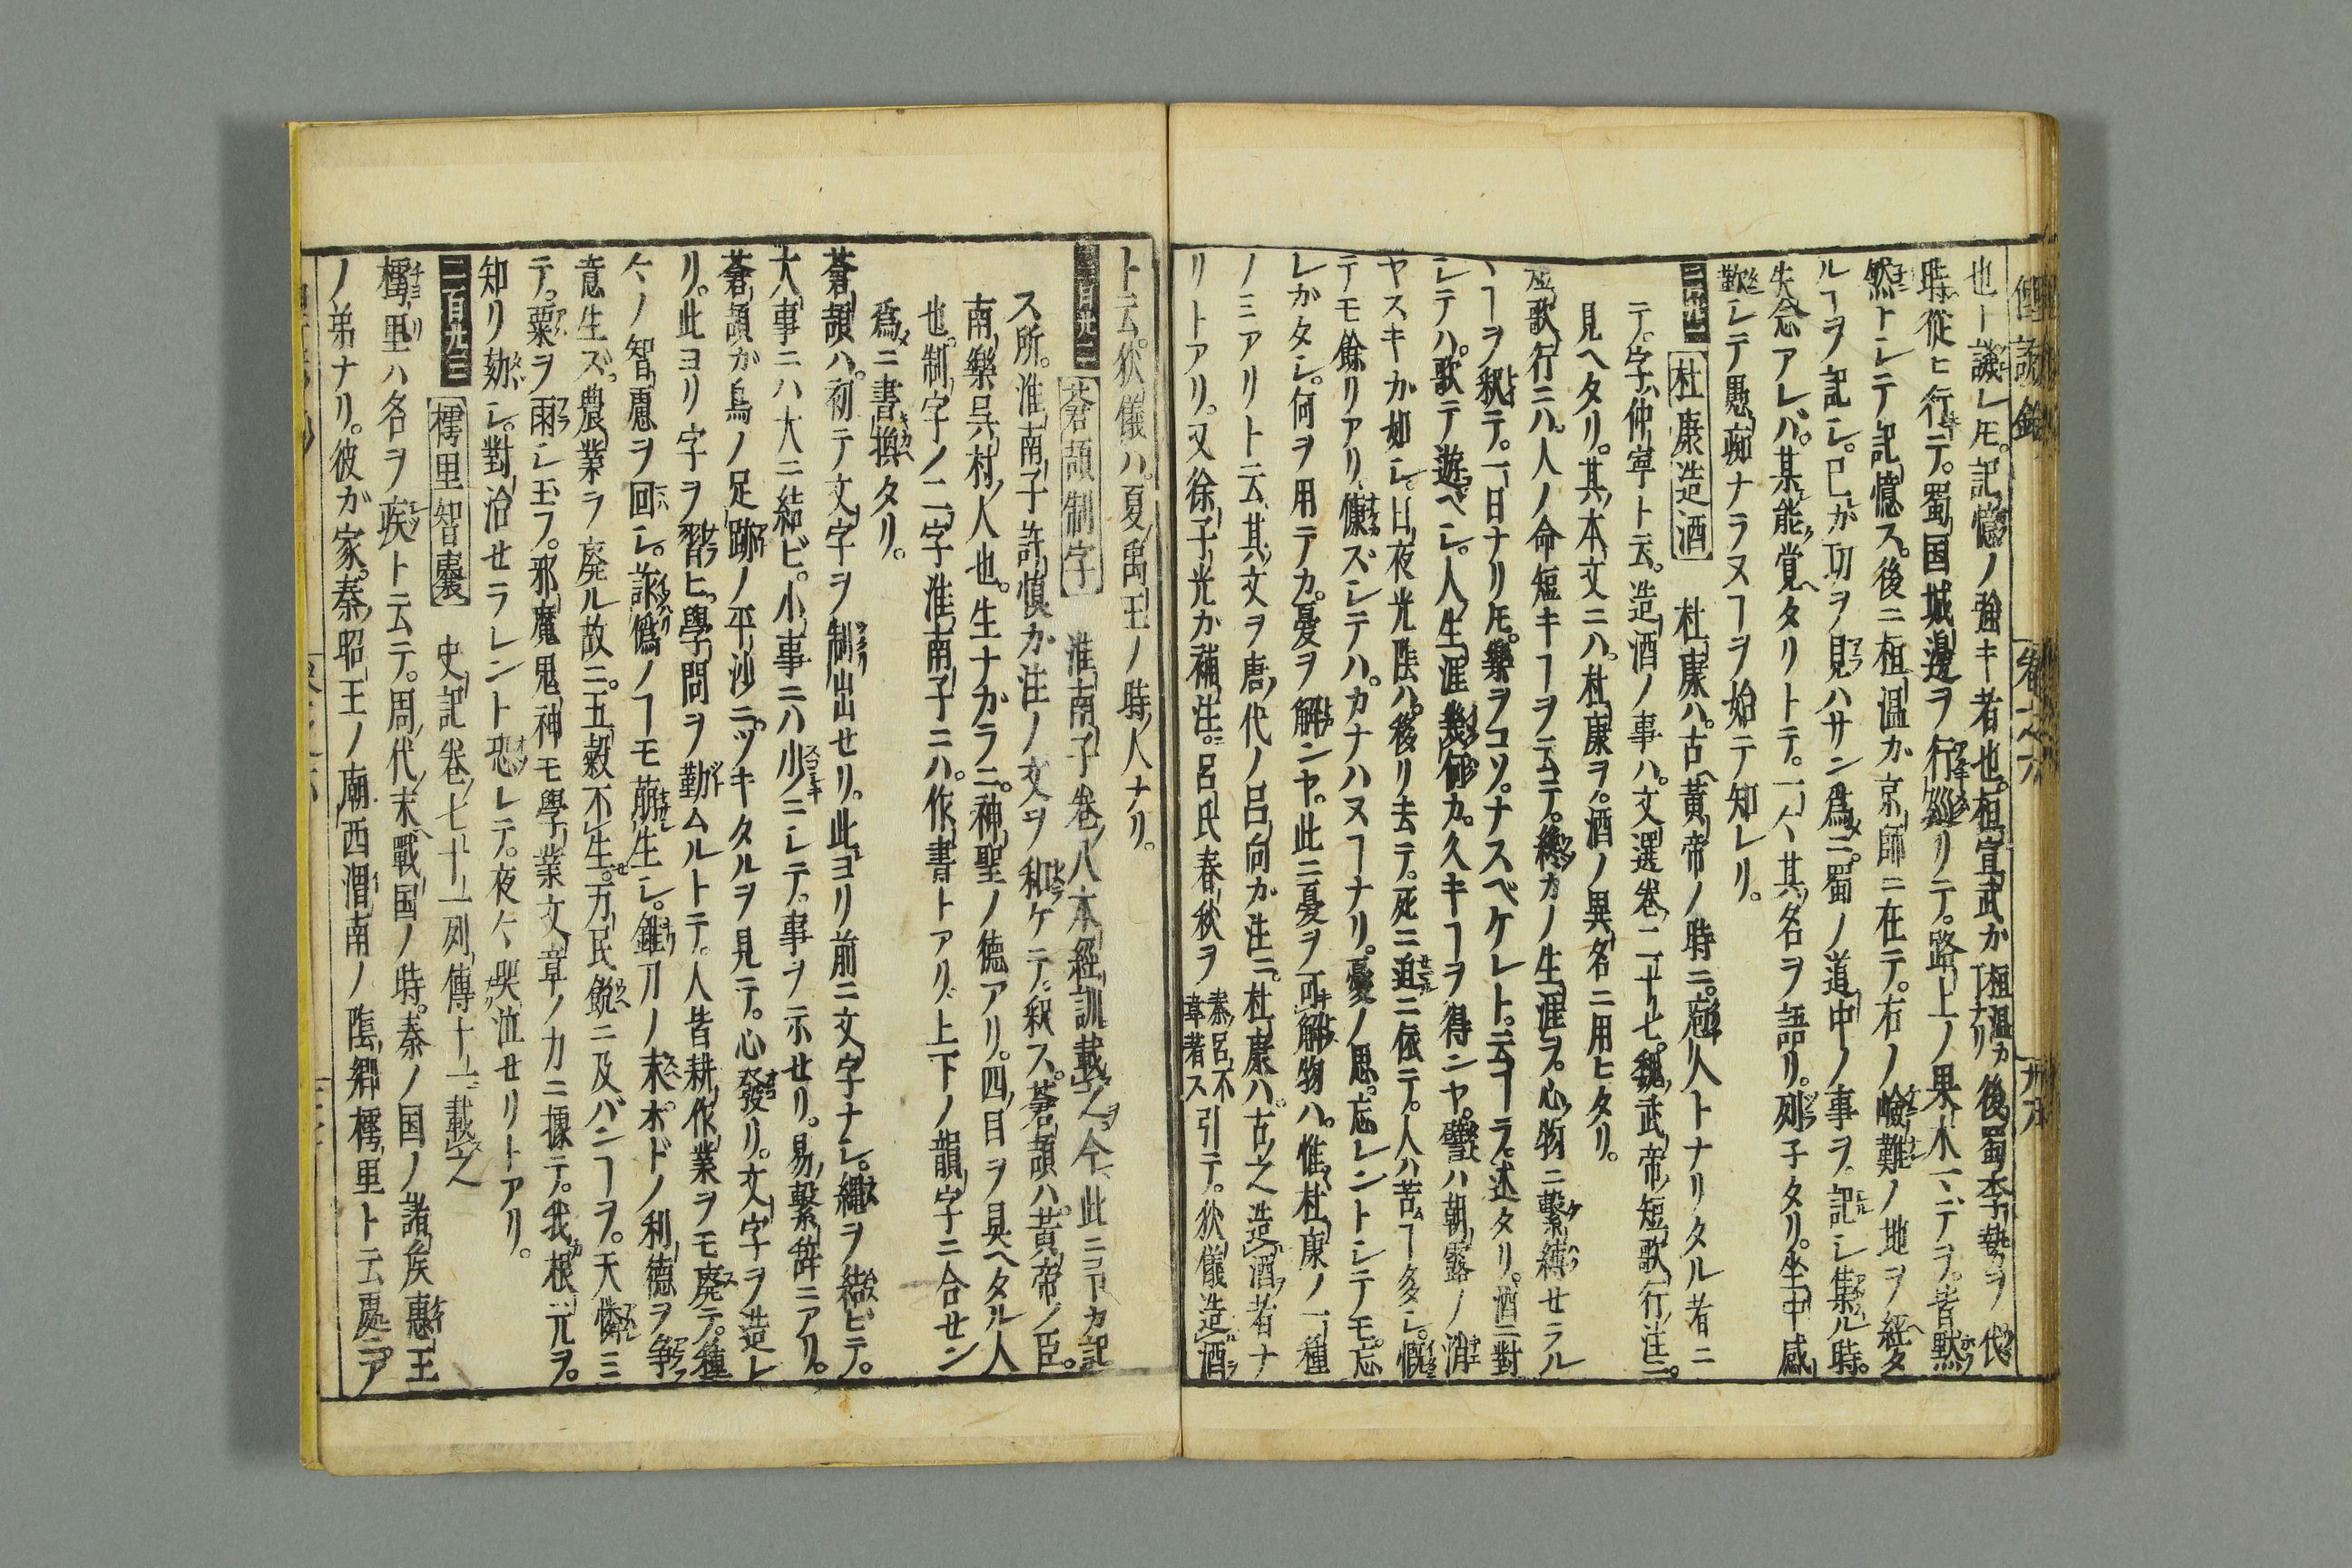 俚諺鈔　卷之六　卅六
也ト議レ𪜈。記憶ノ強キ者也。桓宣武か桓温カ丁ナリ後蜀李勢ヲ代
時。從ヒ行テ。蜀国城邊ヲ行巡リテ。路上ノ果木マデヲ。皆黙
然トシテ記憶ス。後ニ桓温か京師ニ在テ。右ノ嶮難ノ地ヲ經タ
ルヿヲ記シ。己か功ヲ見ハサン爲ニ。蜀ノ道中ノ事ヲ。記シ集ル時。
失念アレバ。某能覚ヘタリトテ。一々其名ヲ語リ。列子タリ。坐中感
歎シテ愚痴ナラヌヿヲ始テ知レリ。
杜康造酒　杜康ハ。古ヘ黄帝ノ時ニ。人トナリタル者ニ
テ。字ハ仲寧ト云。造酒ノ事ハ。文選卷二十七。魏武帝短歌行注ニ。
見ヘタリ。其本文ニハ。杜康ヲ。酒ノ異名ニ用ヒタリ。
短歌行ニハ。人ノ命短キヿヲ云テ。纔カノ生涯ヲ。心物ニ繋縛セラル
ヽヿヲ釈テ。一日ナリ𪜈。樂ヲコソ。ナスベケレト。云ヿヲ述タリ。酒ニ對
シテハ。歌テ遊ベシ。人生涯幾何カ。久キヿヲ得ンヤ。譬ハ朝露ノ消
ヤスキか如シ。日夜光陰ハ。移リ去テ。死ニ迫ニ依テ。人ハ苦ムヿ多シ。慨
テモ餘リアリ。慷ズシテハ。カナハヌヿナリ。憂ノ思。忘レントシテモ。忘
レかタシ。何ヲ用テカ。憂ヲ解ンヤ。此ニ憂ヲ可解物ハ。惟杜康ノ一種
ノミアリト云。其文ヲ唐ノ代ノ呂向が注ニ。杜康ハ。古之造酒者ナ
リトアリ。又徐子光か補注。呂氏春秋ヲ秦呂不韋著ス引テ。狄儀造酒
ト云。狄儀ハ。夏ノ禹王ノ時ノ人ナリ。
二百九二　蒼頡制字　淮南子卷ノ八本經訓載之。今此ニヿカ記
ス所。淮南子許慎か注ノ文ヲ和ケテ。釈ス。蒼頡ハ。黄帝ノ臣。
南樂呉村ノ人也。生ナカラニ。神聖ノ徳アリ。四目ヲ具ヘタル人
也。制字ノ二字淮南子ニハ。作書トアリ。上下ノ韻字ニ合セン
爲ニ書換タリ。
蒼頡ハ。初テ文字ヲ制出セリ。此ヨリ前ニ文字ナシ。繩ヲ結ビテ。
大事ニハ大ニ結ビ。小事ニハ少ニシテ。事ヲ示セリ。易ノ繫辞ニアリ。
蒼頡が鳥ノ足跡ノ平沙ニ。ツキタルヲ見テ。心發リ。文字ヲ造レ
リ。此ヨリ字ヲ習ヒ。學問ヲ勤ムルトテ。人皆耕作業ヲモ廃テ。種
々ノ智惠ヲ回シ。詐偽ノヿモ萠生シ。錐刀ノ末ホドノ利徳ヲ争フ
意生ズ。農業ヲ廃ル故ニ。五穀不生。万民餓ニ及バンヿヲ。天憐ミ
テ。粟ヲ雨シ玉フ。邪魔鬼神モ學業文章ノ力ニ據テ。我根元ヲ。
知リ劾シ。對治セラレント恐レテ。夜々哭泣セリトアリ。
二百九三　樗里智嚢　史記卷ノ七十一列傳十一載之
樗里ハ名ヲ疾ト云テ。周ノ代ノ末戰国ノ時。秦ノ国ノ諸矦惠王
ノ弟ナリ。彼ガ家。秦昭王ノ廟西渭南ノ陰郷樗里ト云處ニア